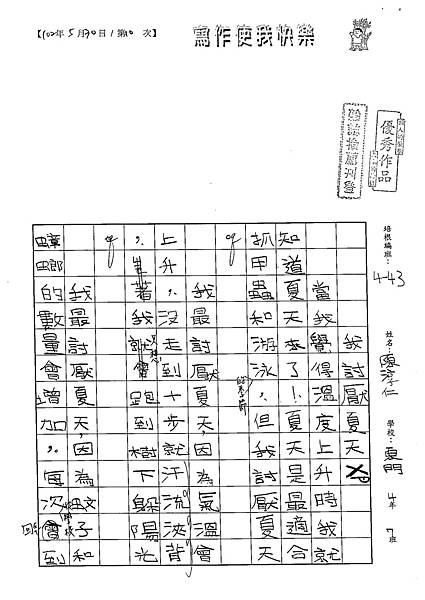 【102年5月30日/第10次】
寫作使我快樂
優秀作品
培根編班：4-43
姓名：陳 仁
學校：東門
4年7班
我討厭夏天
當我覺得溫度上升時我就
知道夏天來了！夏天是最適合
抓甲蟲和游泳，但我討厭夏天
。
我最討厭夏天，因為氣溫會
上升，沒走十步就汗流浹背
，著我就會跑到樹下躲陽光
。
我最討厭夏天，因為蚊子和
蟑螂的數量會增加，每次回到